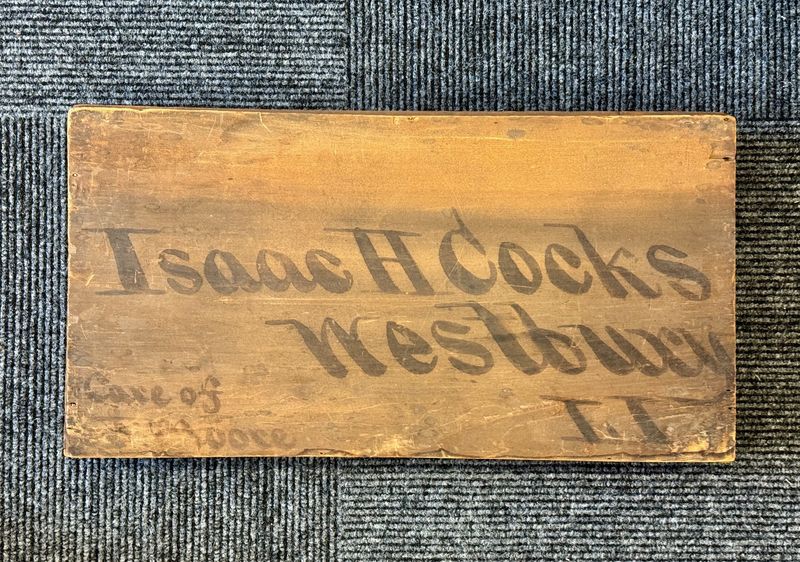 Isaac H Cocks
Westbury
L I
Care of
Moore